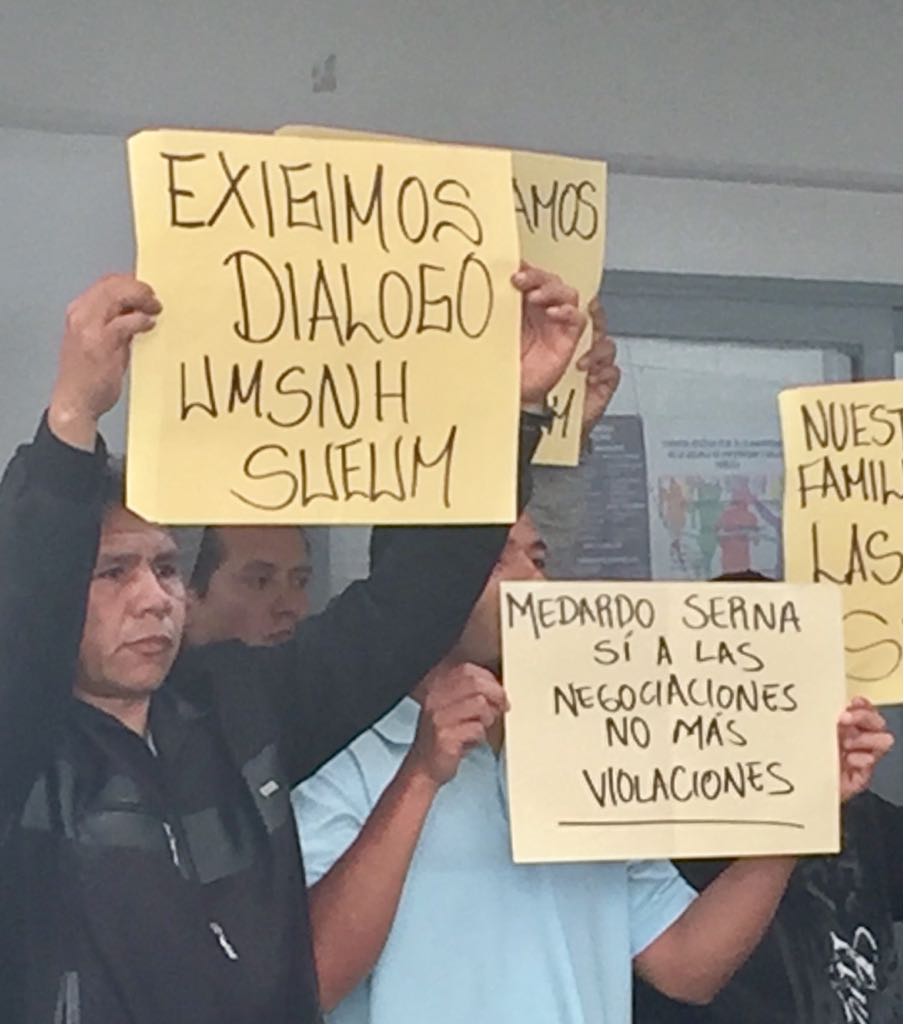 EXIGIMOS
DIALOGO
UMSNH
SUEUM
AMOS
M
NUEST
FAMIL
LAS
S
MEDARDO SERNA
SÍ A LAS
NEGOCIACIONES
NO MÁS
VIOLACIONES